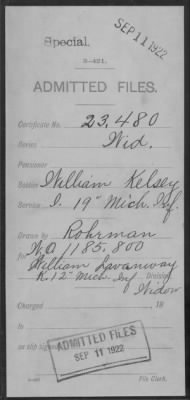 SEP 11 1922
Special.
3-421.
ADMITTED FILES.
Certificate No. 23,480
Series Wid.
Pensioner
Soldier William Kelsey
Service I. 19" Mich. Inf.
Drawn by Rohrman
W.O. 1185.800
William Lavanway
K. 12" Mich. Inf Division
Widow
Charged 18
ADMITTED FILES
SEP 11 1922
File Clerk.